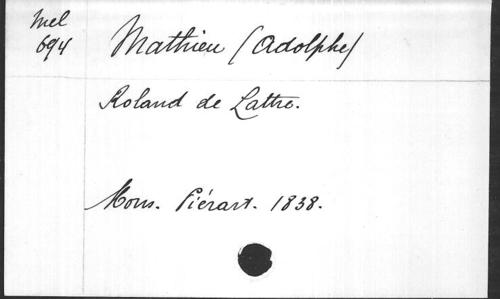 Mel
694
Mathieu (Adolphe)
Roland de Lattre.
Mons. Piérart. 1838.